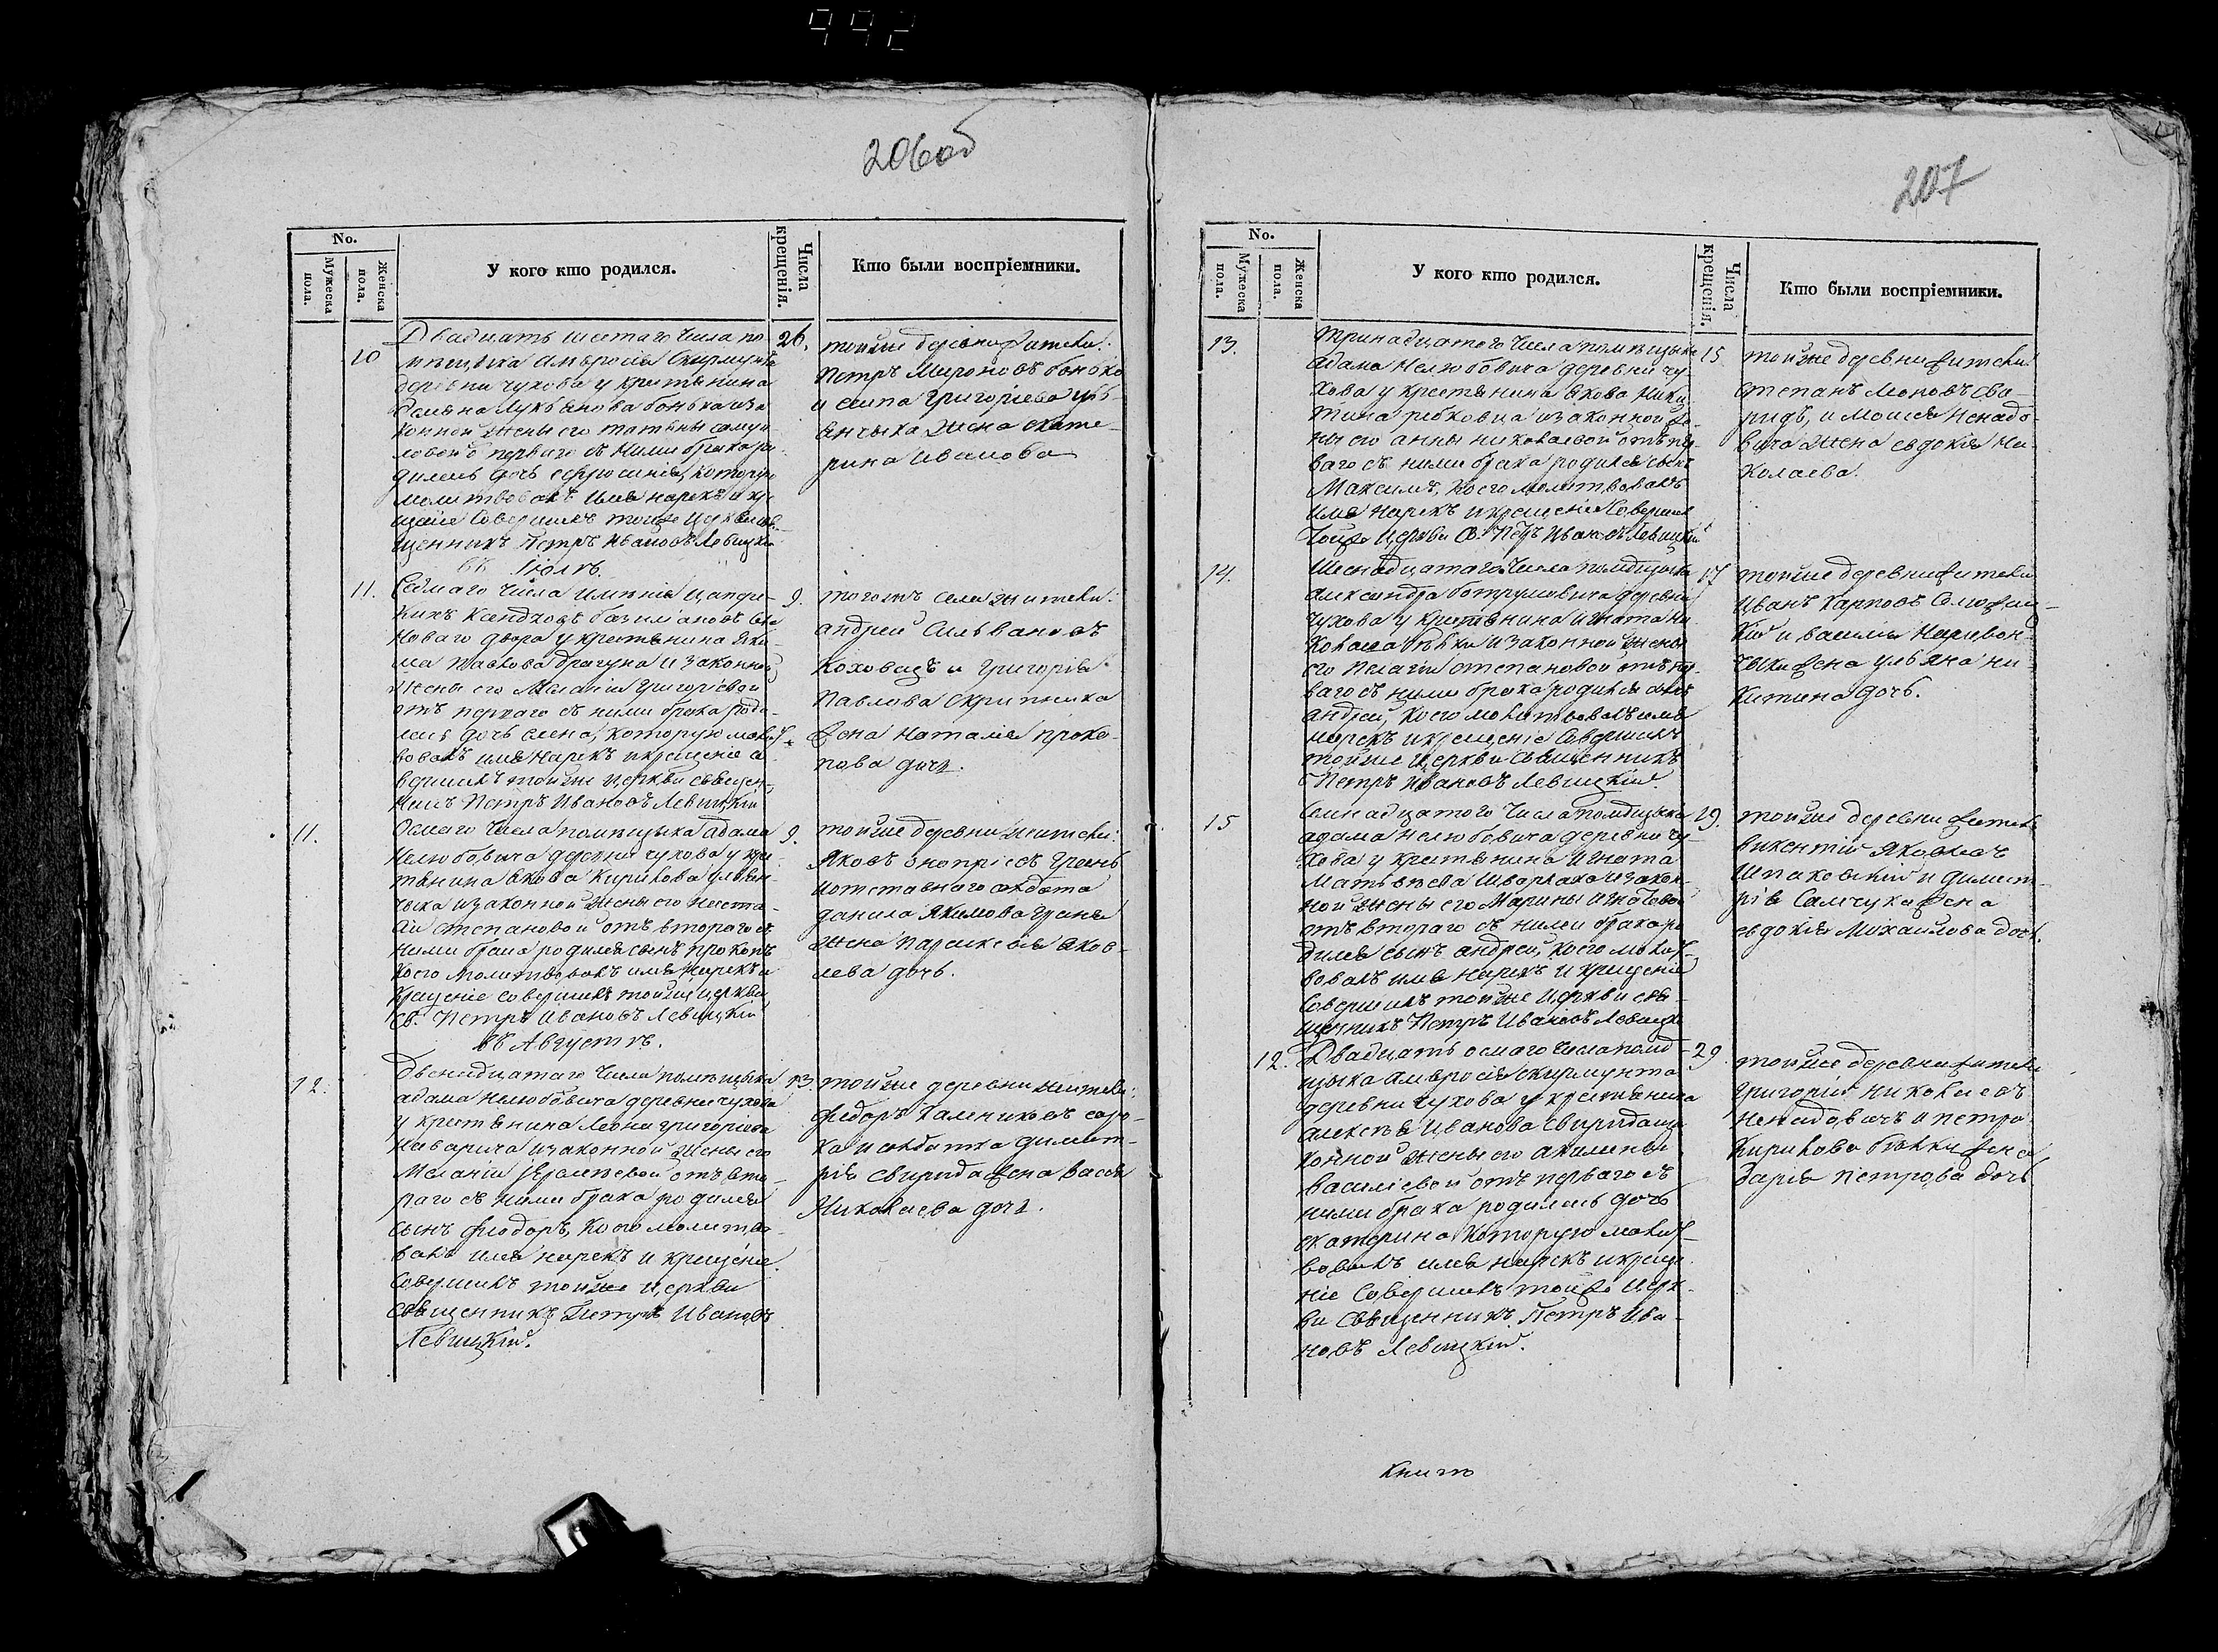 992
206об
No.
Мужеска пола.
Женска пола.
У кого кто родился.
Числа крещенія.
Кто были воспріемники.
10
Двадцать шестаго числа по-
мѣщика Амвросія Скирмунта
деревни чухова у крестьянина
Лукьянова бонька иза
конной жены его татьяны самуи
ловой перваго съ ними брака ро
дилась дочь ефросинія, которую
молитвовалъ имя нарекъ и кре
щеніе Совершилъ тойже Церкви свя
щенникъ Петръ Ивановъ Левицкій
26.
тойже деревни жители:
Петръ Мироновъ бонько
и Григоріева
жена екате-
рина Иванова
въ Іюлѣ.
11.
Седмаго числа имѣнія
Ксендзовъ базиліановъ села
Новаго двора у крестьянина Яки
ма Павлова драгуна изаконной
жены его Меланіи Григоріевой
отъ перваго съ ними брака роди-
лась дочь елена, которую молит
вовалъ имя нарекъ икрещеніе со
вершилъ тойже церкви священ-
никъ Петръ Ивановъ Левицкій
9.
тогожъ села жители:
андрей Сильвановъ
Коховецъ и Григорія
Павлова Скрипника
жена Наталія проко-
пова дочь.
11.
Осмаго числа помѣщика адама
Нелюбовича деревни чухова у кре
стьянина якова Кирилова
чыка изаконной жены его Наста-
сіи степановой отъ втораго съ
ними брака родился сынъ прокопъ
коего молитвовалъ имя нарекъ и
крещеніе совершилъ тойже церкви
Св. Петръ Ивановъ Левицкій
9.
тойже деревни жители:
Яковъ Гринь
иотставнаго солдата
данила Якимова Гриня
жена параскевія яков-
лева дочь.
въ Августѣ.
12.
Двенадцатаго числа помѣщика
адама Нелюбовича деревни чухова
у крестьянина Леона Григоріева
изаконной жены его
Меланіи отъ вто-
раго съ ними брака родился
сынъ Фіодоръ, коего молитво-
валъ имя нарекъ и крещеніе
Совершилъ тойже церкви
священникъ Петръ Ивановъ
Левицкій.
13
тойже деревни жители:
федоръ
ка и солдатка димит-
рія Свирида жена васса
Николаева дочь.
207
No.
Мужеска пола.
Женска пола.
У кого кто родился.
Числа крещенія.
Кто были воспріемники.
13.
Тринадцатого числа помѣщыка
Адама Нелюбовича деревни чу-
хова у крестьянина Якова Ники
тина рибковца изаконной же-
ны его анны николаевой отъ пер-
ваго съ ними брака родился сынъ
Максимъ, коего молитвовалъ
имя нарекъ икрещеніе Совершил
Тойже Церкви Св. Петръ Ивановъ Левицкій
15
тойже деревни жители
степанъ Леоновъ сви-
ридъ, и Моисея Ненадо-
вича жена евдокія Ни-
колаева.
14.
Шеснадцатаго числа помѣщыка
Александра ботрушовича деревни
чухова у крестьянина игната Ни
изаконной жены
его Пелагіи степановой отъ пер-
ваго съ ними брака родился сынъ
андрей, коего молитвовалъ имя
нарекъ икрещеніе Совершилъ
тойже церкви Священникъ
Петръ Ивановъ Левицкій.
17
тойже деревни жители
Иванъ Карповъ
кій и василія
жена ульяна ни-
китина дочь.
15
Семнадцатого числа помѣщыка
адама нелюбовича деревни чу-
хова у крестьянина Игната
Матвѣева изакон-
ной жены его Марины игнатовой
отъ втораго съ ними брака ро
дился сынъ андрей, коего молит-
вовалъ имя нарекъ и крещеніе
Совершилъ тойже церкви свя-
щенникъ Петръ Ивановъ Левицкій
19.
тойже деревни жители
викентій Яковлевъ
Шпаковскій и димит-
рія Самчука жена
евдокія Михаилова дочь.
12.
Двадцать осмаго числа помѣ-
щыка Амвросія скирмунта
деревни чухова у крестьянина
алексѣя Иванова Свирида иза
конной жены его акилины
василіевой отъ перваго съ
ними брака родилась дочь
екатерина которую молит-
вовалъ имя нарекъ икреще-
ніе Совершилъ тойже церк-
ви Священникъ Петръ Ива-
новъ Левицкій.
29.
тойже деревни жители
Григорій Николаевъ
Ненадовичъ и петра
Кирилова жена
дарія Петрова дочь